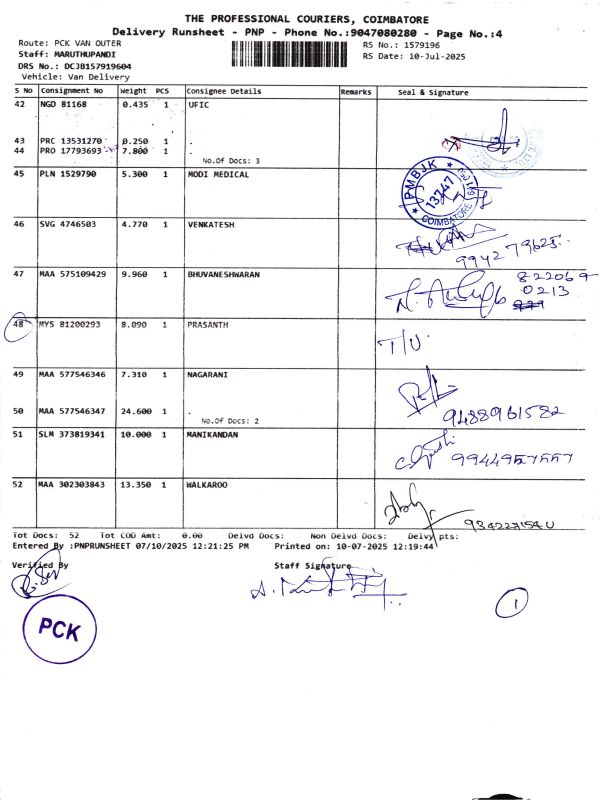 THE PROFESSIONAL COURIERS, COIMBATORE
Delivery Runsheet - PNP - Phone No.:9047080280 - Page No.:4
Route: PCK VAN OUTER RS No.: 1579196
Staff: MARUTHUPANDI RS Date: 10-Jul-2025
DRS No.: DCJB157919604
Vehicle: Van Delivery
S No Consignment No Weight PCS Consignee Details Remarks Seal & Signature
42 NGD 81168 0.435 1 UFIC
43 PRC 13531270 0.250 1 .
44 PRO 17793693 7.800 1 .
No.Of Docs: 3
45 PLN 1529790 5.300 1 MODI MEDICAL
PMBJK
13747
COIMBATORE
46 SVG 4746503 4.770 1 VENKATESH
994279625
47 MAA 575109429 9.960 1 BHUVANESHWARAN
822069
0213
48 MYS 81200293 8.090 1 PRASANTH
T/U
49 MAA 577546346 7.310 1 NAGARANI
50 MAA 577546347 24.600 1 .
No.Of Docs: 2
9488961582
51 SLM 373819341 10.000 1 MANIKANDAN
52 MAA 302303843 13.350 1 WALKAROO
Tot Docs: 52 Tot COD Amt: 0.00 Delvd Docs: Non Delvd Docs: Delvy pts:
Entered By :PNPRUNSHEET 07/10/2025 12:21:25 PM Printed on: 10-07-2025 12:19:44
Verified By Staff Signature
1
PCK